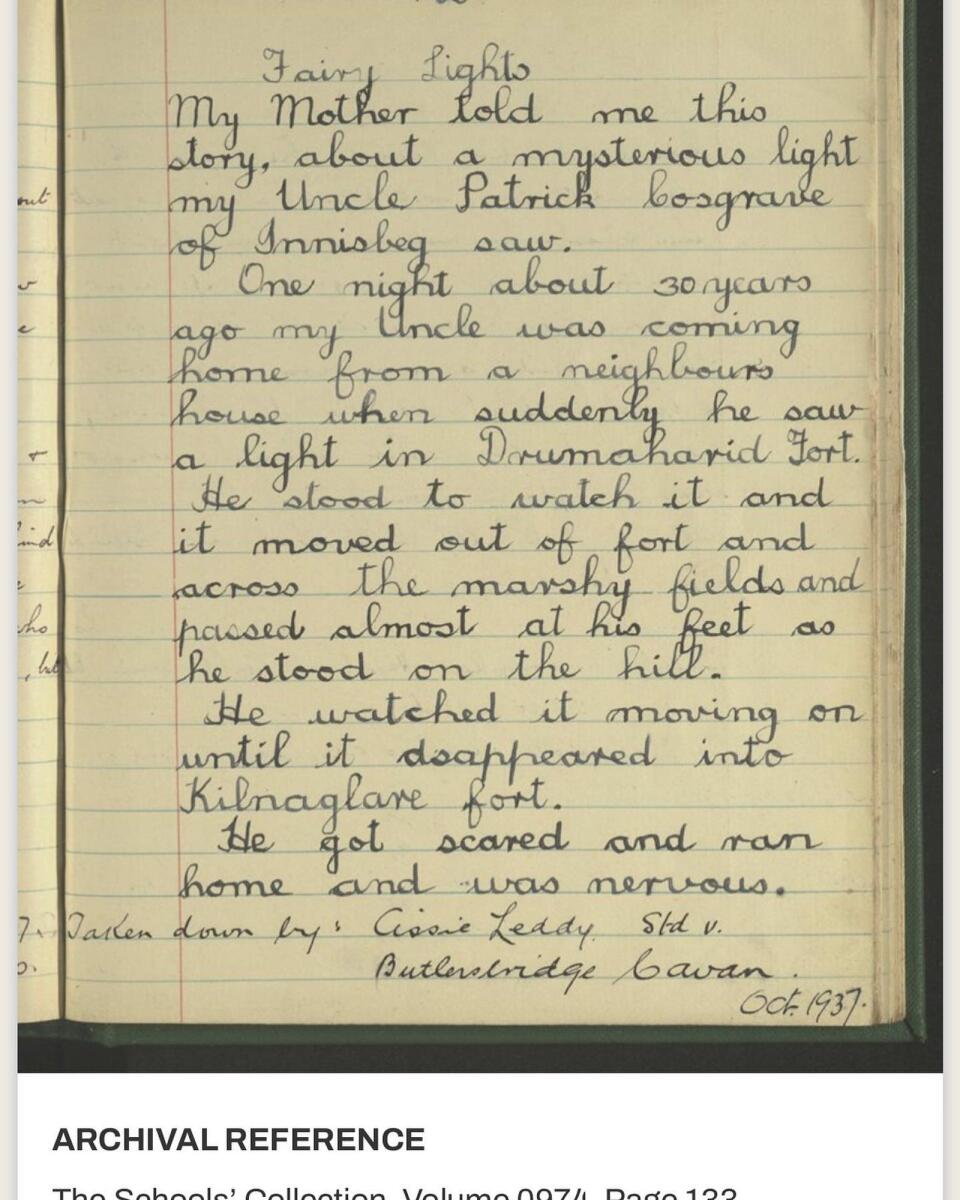 Fairy Lights
My Mother told me this
story, about a mysterious light
my Uncle Patrick Cosgrave
of Innisbeg saw.
One night about 30 years
ago my Uncle was coming
home from a neighbours
house when suddenly he saw
a light in Drumaharid Fort.
He stood to watch it and
it moved out of fort and
across the marshy fields and
passed almost at his feet as
he stood on the hill.
He watched it moving on
until it dsappeared into
Kilnaglare fort.
He got scared and ran
home and was nervous.
Taken down by: Cissie Leddy. Std v.
Butlersbridge Cavan.
Oct. 1937.
ARCHIVAL REFERENCE
The Schools' Collection, Volume 0974, Page 133